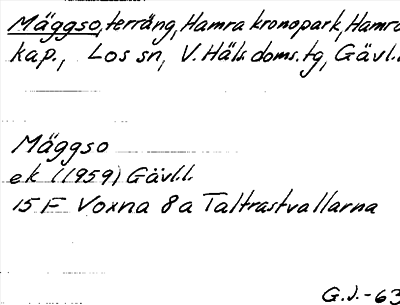 Mäggso, terräng, Hamra kronopark, Hamra
kap., Los sn, V. Häls. doms.tg, Gävl.l
Mäggso
ek (1959) Gävl.l.
15 F Voxna 8a Taltrastvallarna
G.J.-63